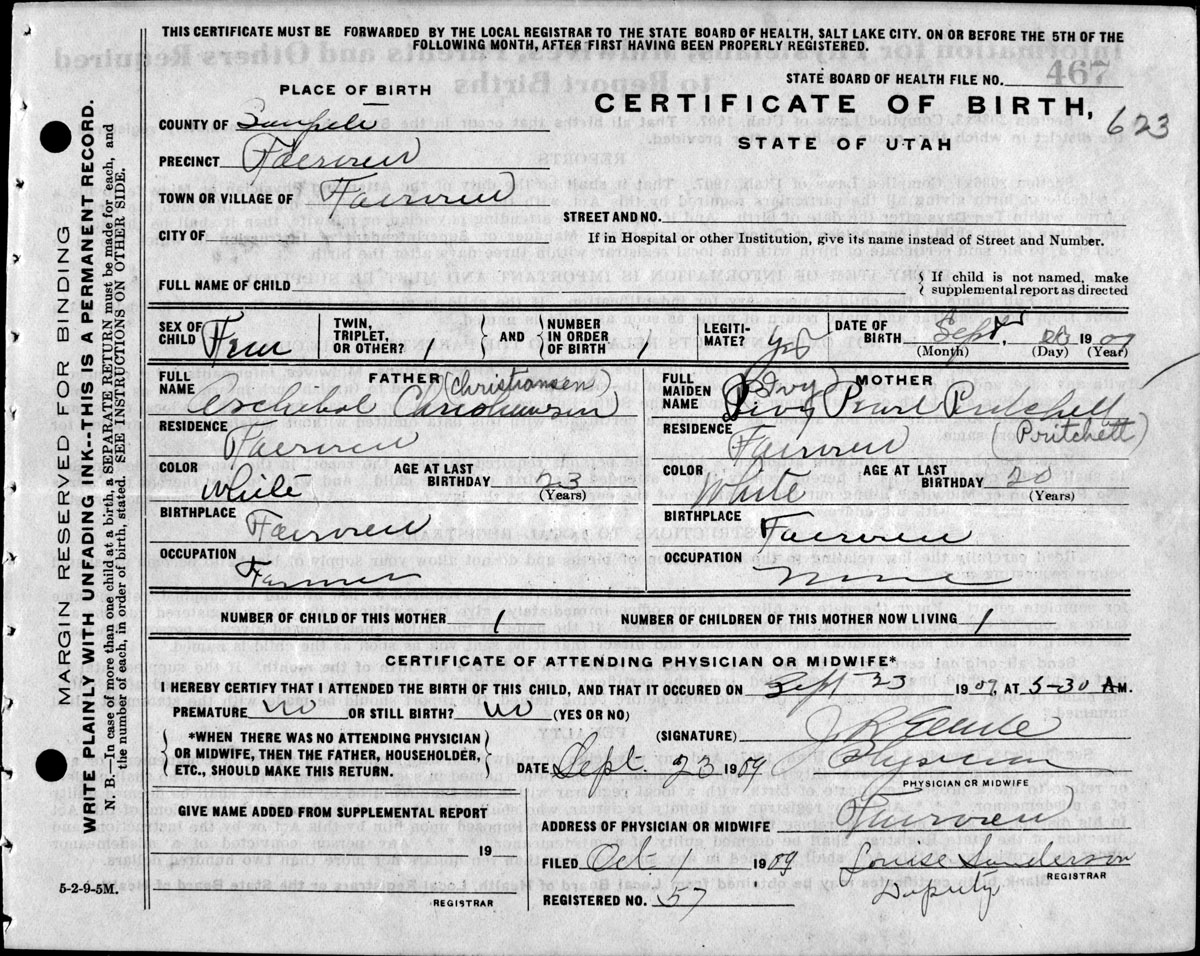 THIS CERTIFICATE MUST BE FORWARDED BY THE LOCAL REGISTRAR TO THE STATE BOARD OF HEALTH, SALT LAKE CITY. ON OR BEFORE THE 5TH OF THE
FOLLOWING MONTH, AFTER FIRST HAVING BEEN PROPERLY REGISTERED.
STATE BOARD OF HEALTH FILE NO. 467
PLACE OF BIRTH
CERTIFICATE OF BIRTH, 623
STATE OF UTAH
COUNTY OF Sanpete
PRECINCT Fairview
TOWN OR VILLAGE OF Fairview
STREET AND NO.
CITY OF
If in Hospital or other Institution, give its name instead of Street and Number.
FULL NAME OF CHILD
If child is not named, make
supplemental report as directed
SEX OF CHILD Fem
TWIN, TRIPLET, OR OTHER? 1
AND
NUMBER IN ORDER OF BIRTH 1
LEGITI-MATE? yes
DATE OF BIRTH Sept 23 1909
(Month) (Day) (Year)
FATHER
FULL NAME (Christiansen)
Christiansen
RESIDENCE Fairview
COLOR White
AGE AT LAST BIRTHDAY 23
(Years)
BIRTHPLACE Fairview
OCCUPATION Farmer
MOTHER
FULL MAIDEN NAME (Ivy)
Pearl Pritchett
RESIDENCE Fairview (Pritchett)
COLOR White
AGE AT LAST BIRTHDAY 20
(Years)
BIRTHPLACE Fairview
OCCUPATION None
NUMBER OF CHILD OF THIS MOTHER 1
NUMBER OF CHILDREN OF THIS MOTHER NOW LIVING 1
CERTIFICATE OF ATTENDING PHYSICIAN OR MIDWIFE*
I HEREBY CERTIFY THAT I ATTENDED THE BIRTH OF THIS CHILD, AND THAT IT OCCURED ON Sept 23 1909, AT 5-30 A M.
PREMATURE No OR STILL BIRTH? No (YES OR NO)
(SIGNATURE)
*WHEN THERE WAS NO ATTENDING PHYSICIAN
OR MIDWIFE, THEN THE FATHER, HOUSEHOLDER,
ETC., SHOULD MAKE THIS RETURN.
DATE Sept. 23 1909
Physician
PHYSICIAN OR MIDWIFE
GIVE NAME ADDED FROM SUPPLEMENTAL REPORT
19
REGISTRAR
ADDRESS OF PHYSICIAN OR MIDWIFE Fairview
FILED Oct 1 1909 Louise Sanderson
REGISTRAR
Deputy
REGISTERED NO. 57
5-2-9-5M.
MARGIN RESERVED FOR BINDING
WRITE PLAINLY WITH UNFADING INK--THIS IS A PERMANENT RECORD.
N. B.—In case of more than one child at a birth, a SEPARATE RETURN must be made for each, and
the number of each, in order of birth, stated. SEE INSTRUCTIONS ON OTHER SIDE.